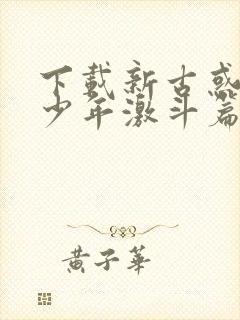 下载新古惑
少年激斗篇
黄子华